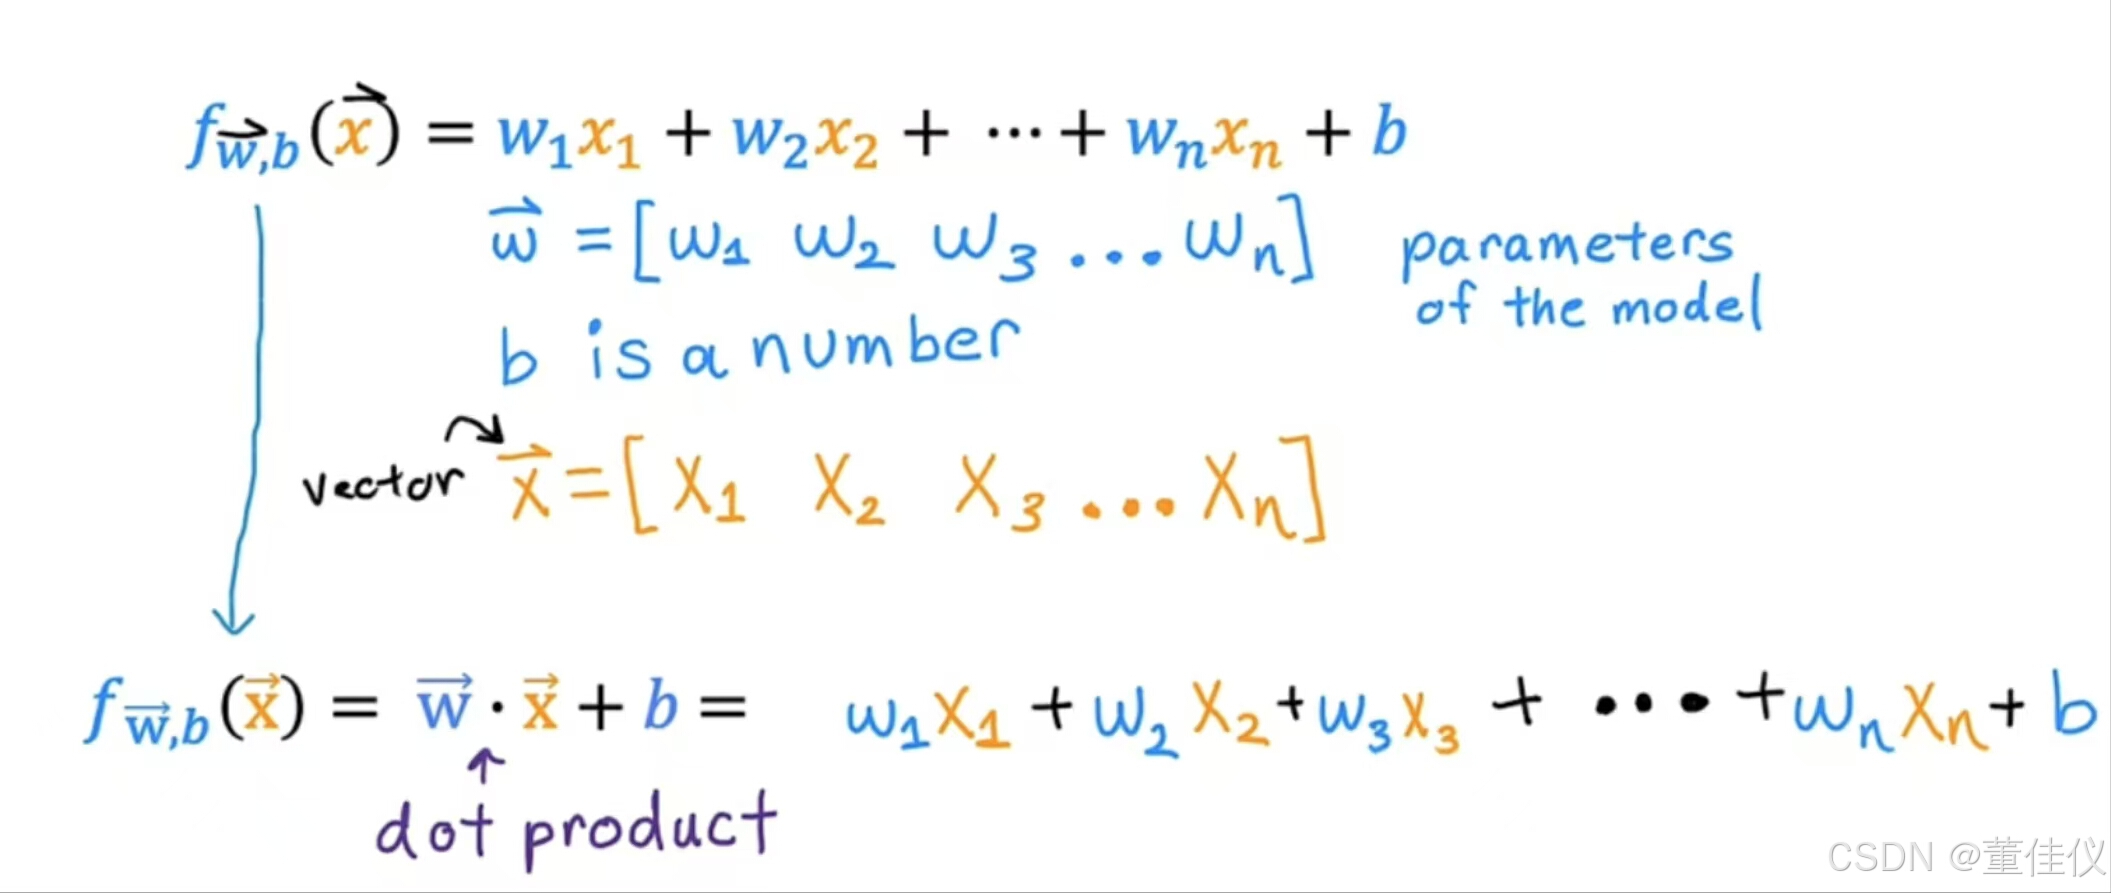 f_{\vec{w},b}(\vec{x}) = w₁x₁ + w₂x₂ + ⋯ + wₙxₙ + b
\vec{w} = [w₁ w₂ w₃ ... wₙ] parameters of the model
b is a number
vector \vec{x} = [x₁ x₂ x₃ ... xₙ]
f_{\vec{w},b}(\vec{x}) = \vec{w} · \vec{x} + b = w₁x₁ + w₂x₂ + w₃x₃ + ... + wₙxₙ + b
dot product
CSDN @董佳仪